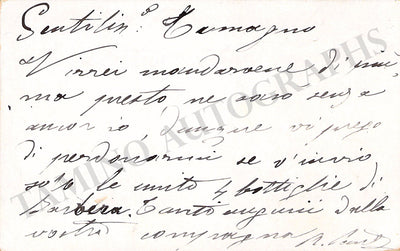 Gentilin.º Tamagno
Vorrei mandarvene di più
ma presto ne sono senza
anch'io, dunque vi prego
di perdonarmi se v'invio
solo le unite 4 bottiglie di
Barbera. Tanti auguri dalla
vostra compagna
TAMINO AUTOGRAPHS